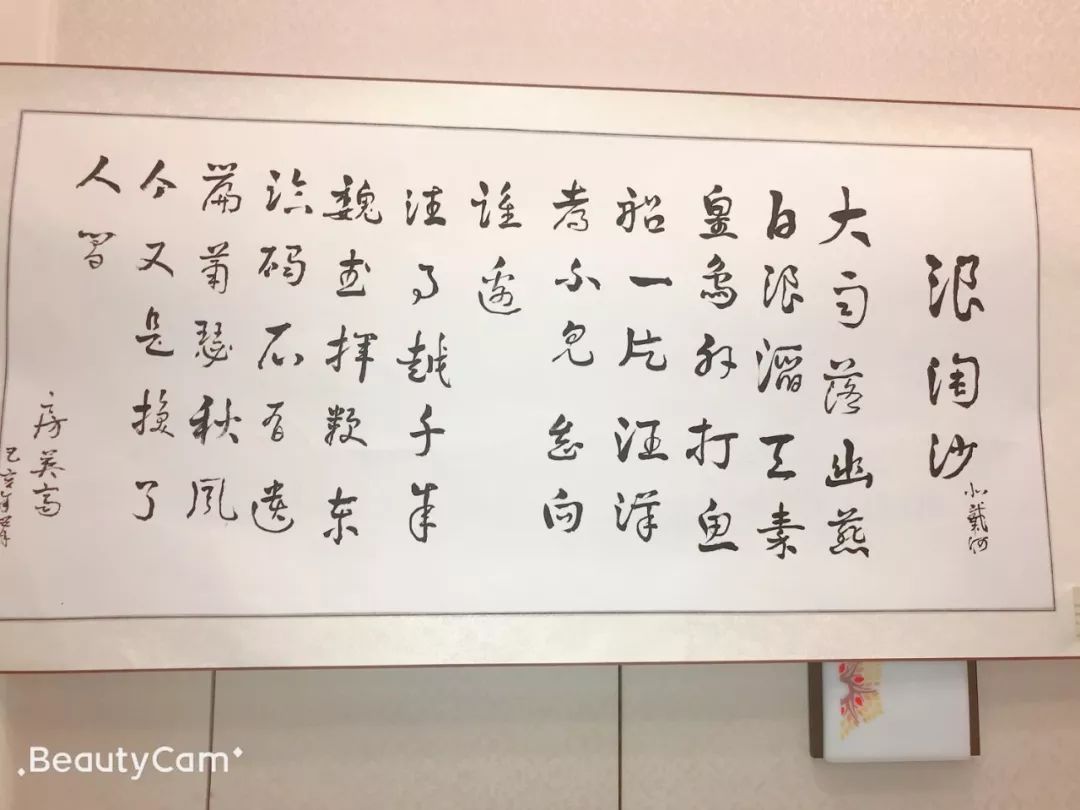 浪淘沙
北戴河
大雨落幽燕
白浪滔天秦
皇岛外打鱼
船一片汪洋
都不见知向
谁边
往事越千年
魏武挥鞭东
临碣石有遗
篇萧瑟秋风
今又是换了
人间
房英高
己亥年
.BeautyCam